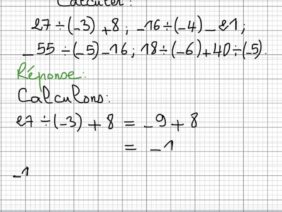 Calculer:
27÷(-3)+8 ; -16÷(-4)-21 ;
-55÷(-5)-16 ; 18÷(-6)+40÷(-5).
Réponse:
Calculons:
27÷(-3)+8 = -9+8
= -1
-1